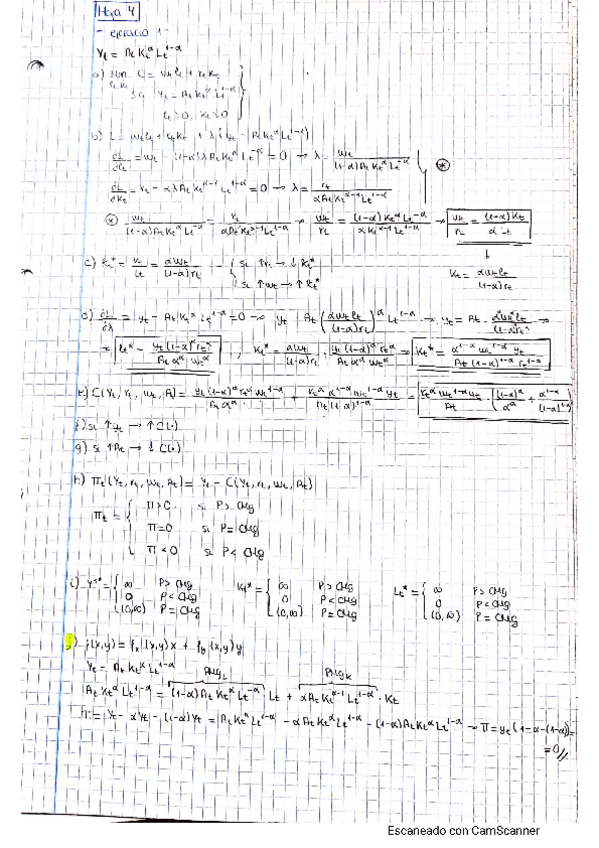 Hoja 4
- ejercicio 1 -
Yt = At Kt^α Lt^1-α
a) min C = wt lt + rt Kt
lt, Kt s.a. Yt = At Kt^α Lt^1-α
lt ≥ 0, Kt ≥ 0
b) L = wt lt + rt Kt + λ(yt - At Kt^α Lt^1-α)
∂L/∂lt = wt - (1-α)λ At Kt^α Lt^-α = 0 → λ = wt/((1-α)At Kt^α Lt^-α)
∂L/∂Kt = rt - αλ At Kt^α-1 Lt^1-α = 0 → λ = rt/(α At Kt^α-1 Lt^1-α)
* wt/((1-α)At Kt^α Lt^-α) = rt/(α At Kt^α-1 Lt^1-α) → wt/rt = (1-α)Kt^α Lt^-α/(α Kt^α-1 Lt^1-α) → wt/rt = (1-α)Kt/(α Lt)
Kt = α wt lt/((1-α)rt)
c) kt* = Kt/Lt = α wt/((1-α)rt)
si ↑rt → ↓ kt*
si ↑wt → ↑ kt*
d) ∂L/∂λ = yt - At Kt^α lt^1-α = 0 → yt = At (α wt lt/((1-α)rt))^α Lt^1-α → yt = At
→ lt* = yt (1-α)^α rt^α/(At α^α wt^α), Kt* = α wt/((1-α)rt) · yt (1-α)^α rt^α/(At α^α wt^α) = Kt* = α^1-α wt^1-α yt/(At (1-α)^1-α rt^1-α)
e) C(Yt, rt, wt, At) = yt (1-α)^α rt^α wt^1-α/(At α^α) + rt^α α^1-α wt^1-α yt/(At (1-α)^1-α) = rt^α wt^1-α yt/At
f) si ↑ yt → ↑ C(·)
g) si ↑ At → ↓ C(·)
h) Πt (Yt, rt, wt, At) = Yt - C(Yt, rt, wt, At)
Π > 0 si P > CMg
Πt = Π = 0 si P = CMg
Π < 0 si P < CMg
i) Y^s* = ∞ P > CMg Kt* = ∞ P > CMg Lt* = ∞ P > CMg
0 P < CMg 0 P < CMg 0 P < CMg
(0,∞) P = CMg (0,∞) P = CMg (0,∞) P = CMg
j) f(x,y) = fx(x,y)x + fy(x,y)y
Yt = At Kt^α Lt^1-α PMgL PMgK
At Kt^α Lt^1-α = (1-α)At Kt^α Lt^-α · Lt + α At Kt^α-1 Lt^1-α · Kt
Π = Yt - αYt - (1-α)Yt = At Kt^α Lt^1-α - α At Kt^α Lt^1-α - (1-α)At Kt^α Lt^1-α → Π = yt (1-α-(1-α)) =
= 0//
Escaneado con CamScanner